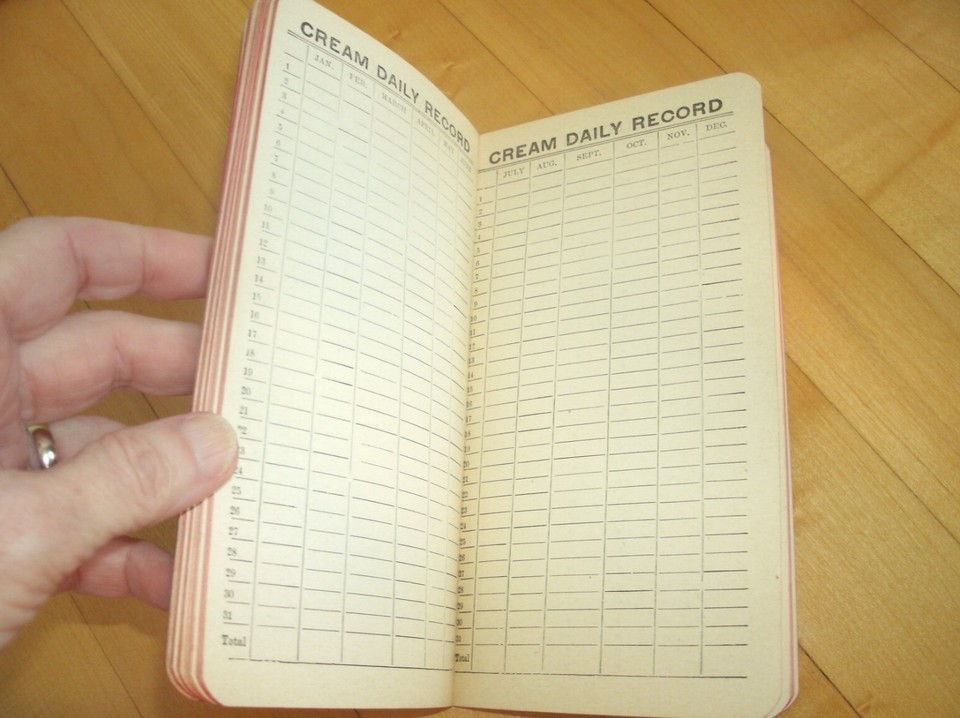 CREAM DAILY RECORD
JAN. FEB. MARCH APRIL MAY
1
2
3
4
5
6
7
8
9
10
11
12
13
14
15
16
17
18
19
20
21
22
23
24
25
26
27
28
29
30
31
Total
CREAM DAILY RECORD
JULY AUG. SEPT. OCT. NOV. DEC.
1
2
3
4
5
6
7
8
9
10
11
12
13
14
15
16
17
18
19
20
21
22
23
24
25
26
27
28
29
30
31
Total